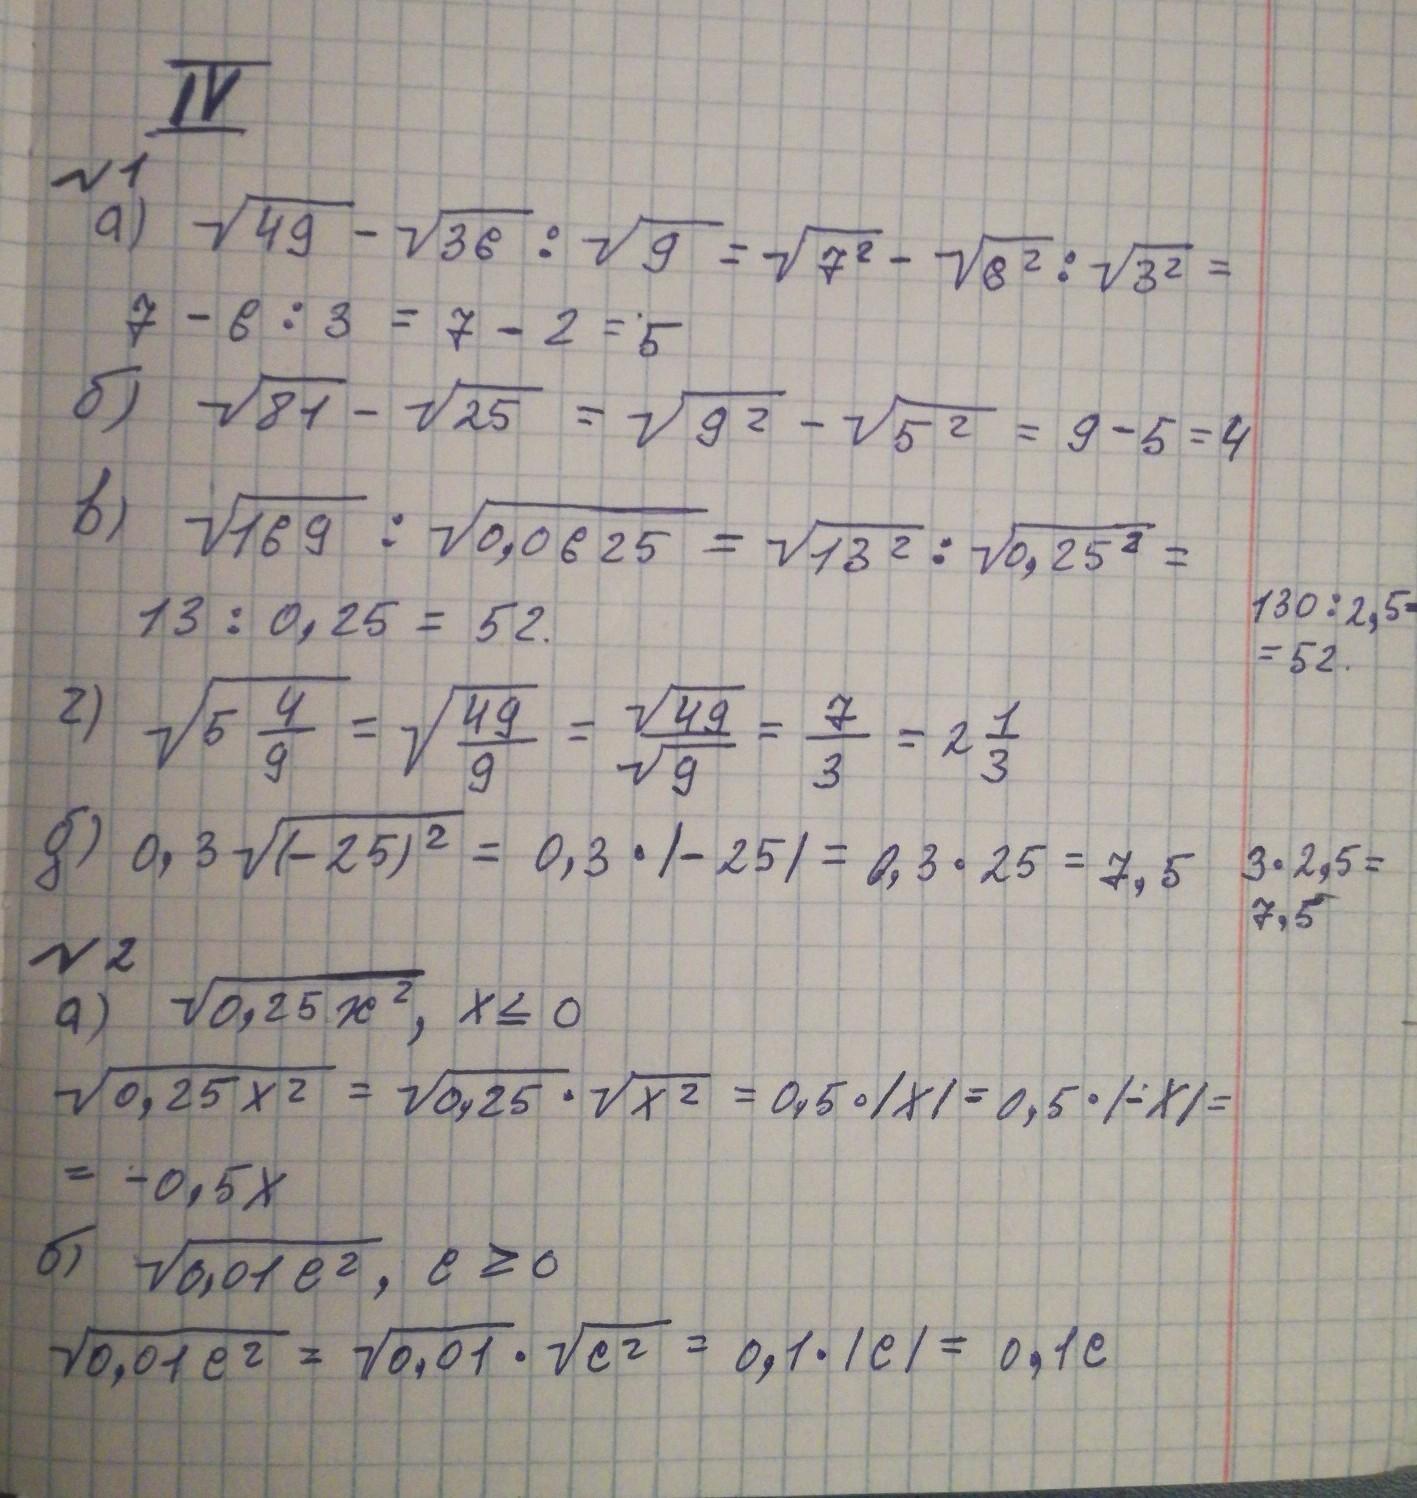 IV
№1
а) √49 - √36 : √9 = √7² - √6² : √3² =
7 - 6 : 3 = 7 - 2 = 5
б) √81 - √25 = √9² - √5² = 9 - 5 = 4
в) √169 : √0,0625 = √13² : √0,25² =
13 : 0,25 = 52.
130 : 2,5 =
= 52.
г) √5 4/9 = √49/9 = √49/√9 = 7/3 = 2 1/3
д) 0,3√(-25)² = 0,3 · |-25| = 0,3 · 25 = 7,5
3 · 2,5 =
7,5
№2
а) √0,25x², x ≤ 0
√0,25x² = √0,25 · √x² = 0,5 · |x| = 0,5 · |-x| =
= -0,5x
б) √0,01c², c ≥ 0
√0,01c² = √0,01 · √c² = 0,1 · |c| = 0,1c